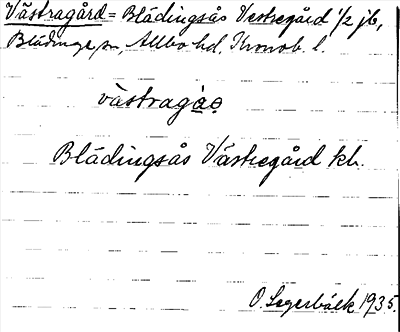 Västragård = Blädingsås Vestregård 1/2 jb,
Blädinge sn, Allbo hd, Kronob. l.
västragåo
Blädingsås Västregård kb.
O. Segerbäck 1935.